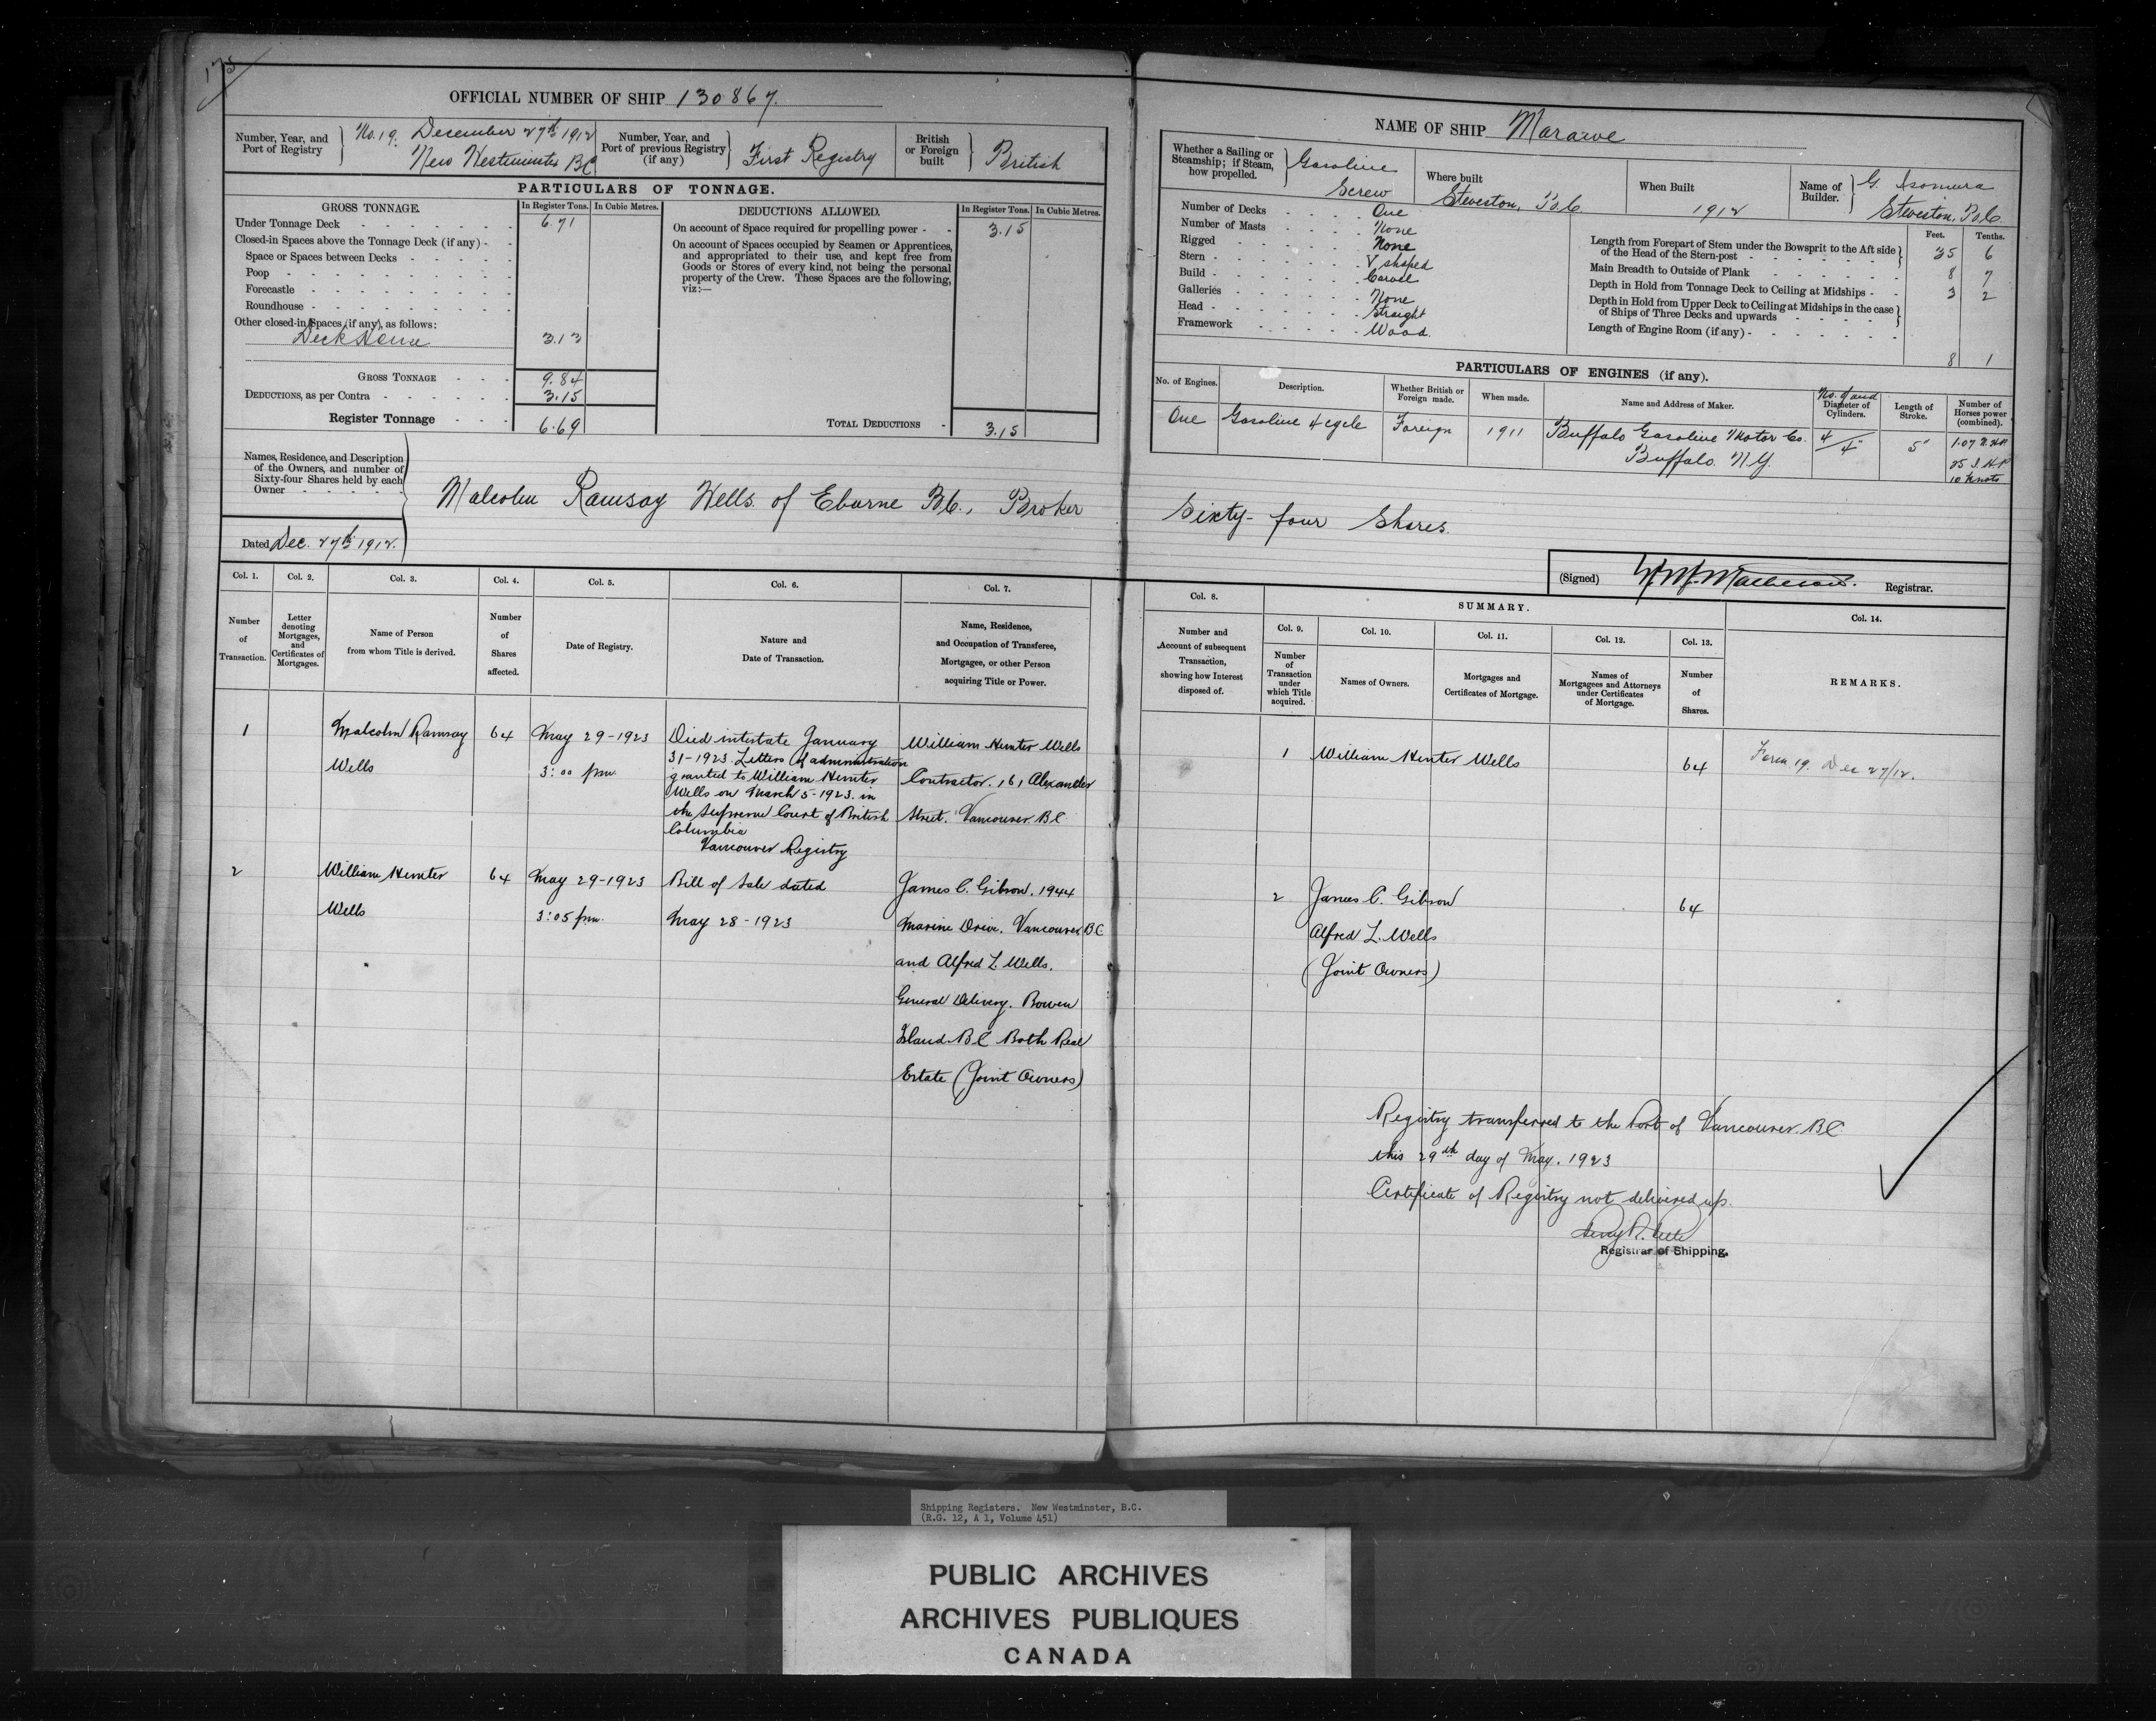 175
OFFICIAL NUMBER OF SHIP 130867.
Number, Year, and Port of Registry
No. 19. December 27th 1912
New Westminster BC
Number, Year, and Port of previous Registry (if any)
First Registry
British or Foreign built
British
PARTICULARS OF TONNAGE.
GROSS TONNAGE.
In Register Tons.
In Cubic Metres.
DEDUCTIONS ALLOWED.
In Register Tons.
In Cubic Metres.
Under Tonnage Deck 6.71
Closed-in Spaces above the Tonnage Deck (if any)
Space or Spaces between Decks
Poop
Forecastle
Roundhouse
Other closed-in Spaces (if any), as follows:
Deck House 3.13
GROSS TONNAGE 9.84
DEDUCTIONS, as per Contra 3.15
Register Tonnage 6.69
On account of Space required for propelling power 3.15
On account of Spaces occupied by Seamen or Apprentices,
and appropriated to their use, and kept free from
Goods or Stores of every kind, not being the personal
property of the Crew. These Spaces are the following,
viz:—
TOTAL DEDUCTIONS 3.15
Names, Residence, and Description
of the Owners, and number of
Sixty-four Shares held by each
Owner
Malcolm Ramsay Wells of Eburne B.C., Broker
Dated Dec. 27th 1912.
Col. 1.
Number of Transaction.
Col. 2.
Letter denoting Mortgages, and Certificates of Mortgages.
Col. 3.
Name of Person from whom Title is derived.
Col. 4.
Number of Shares affected.
Col. 5.
Date of Registry.
Col. 6.
Nature and Date of Transaction.
Col. 7.
Name, Residence, and Occupation of Transferee, Mortgagee, or other Person acquiring Title or Power.
1
Malcolm Ramsay
Wells
64
May 29-1923
3:00 pm.
Died intestate January
31-1923. Letters of administration
granted to William Hunter
Wells on March 5-1923. in
the Supreme Court of British
Columbia
Vancouver Registry
William Hunter Wells
Contractor. 161 Alexander
Street. Vancouver. BC
2
William Hunter
Wells
64
May 29-1923
3:05 pm.
Bill of Sale dated
May 28-1923
James C. Gibson. 1944
Marine Drive. Vancouver BC
and Alfred L. Wells.
General Delivery. Bowen
Island. BC Both Real
Estate (Joint Owners)
NAME OF SHIP Mararve
Whether a Sailing or Steamship; if Steam, how propelled.
Gasoline
Screw
Where built
Steveston, B.C.
When Built
1912
Name of Builder.
G. Isomura
Steveston, B.C.
Number of Decks One
Number of Masts None
Rigged None
Stern V shaped
Build Carvel
Galleries None
Head Straight
Framework Wood.
Feet.
Tenths.
Length from Forepart of Stem under the Bowsprit to the Aft side of the Head of the Stern-post 35 6
Main Breadth to Outside of Plank 8 7
Depth in Hold from Tonnage Deck to Ceiling at Midships 3 2
Depth in Hold from Upper Deck to Ceiling at Midships in the case of Ships of Three Decks and upwards
Length of Engine Room (if any) 8 1
PARTICULARS OF ENGINES (if any).
No. of Engines.
Description.
Whether British or Foreign made.
When made.
Name and Address of Maker.
No. of and
Diameter of Cylinders.
Length of Stroke.
Number of Horses power (combined).
One
Gasoline 4 cycle
Foreign
1911
Buffalo Gasoline Motor Co.
Buffalo. N.Y.
4/4"
5"
1.07 N.H.P
25 I.H.P
10 knots
Sixty-four Shares.
(Signed) Registrar.
Col. 8.
Number and Account of subsequent Transaction, showing how Interest disposed of.
SUMMARY.
Col. 9.
Number of Transaction under which Title acquired.
Col. 10.
Names of Owners.
Col. 11.
Mortgages and Certificates of Mortgage.
Col. 12.
Names of Mortgagees and Attorneys under Certificates of Mortgage.
Col. 13.
Number of Shares.
Col. 14.
REMARKS.
1
William Hunter Wells
64
Form 19. Dec 27/12.
2
James C. Gibson
Alfred L. Wells
(Joint Owners)
64
Registry transferred to the Port of Vancouver. BC
this 29th day of May. 1923
Certificate of Registry not delivered up.
Registrar of Shipping.
Shipping Registers. New Westminster, B.C.
(R.G. 12, A 1, Volume 451)
PUBLIC ARCHIVES
ARCHIVES PUBLIQUES
CANADA